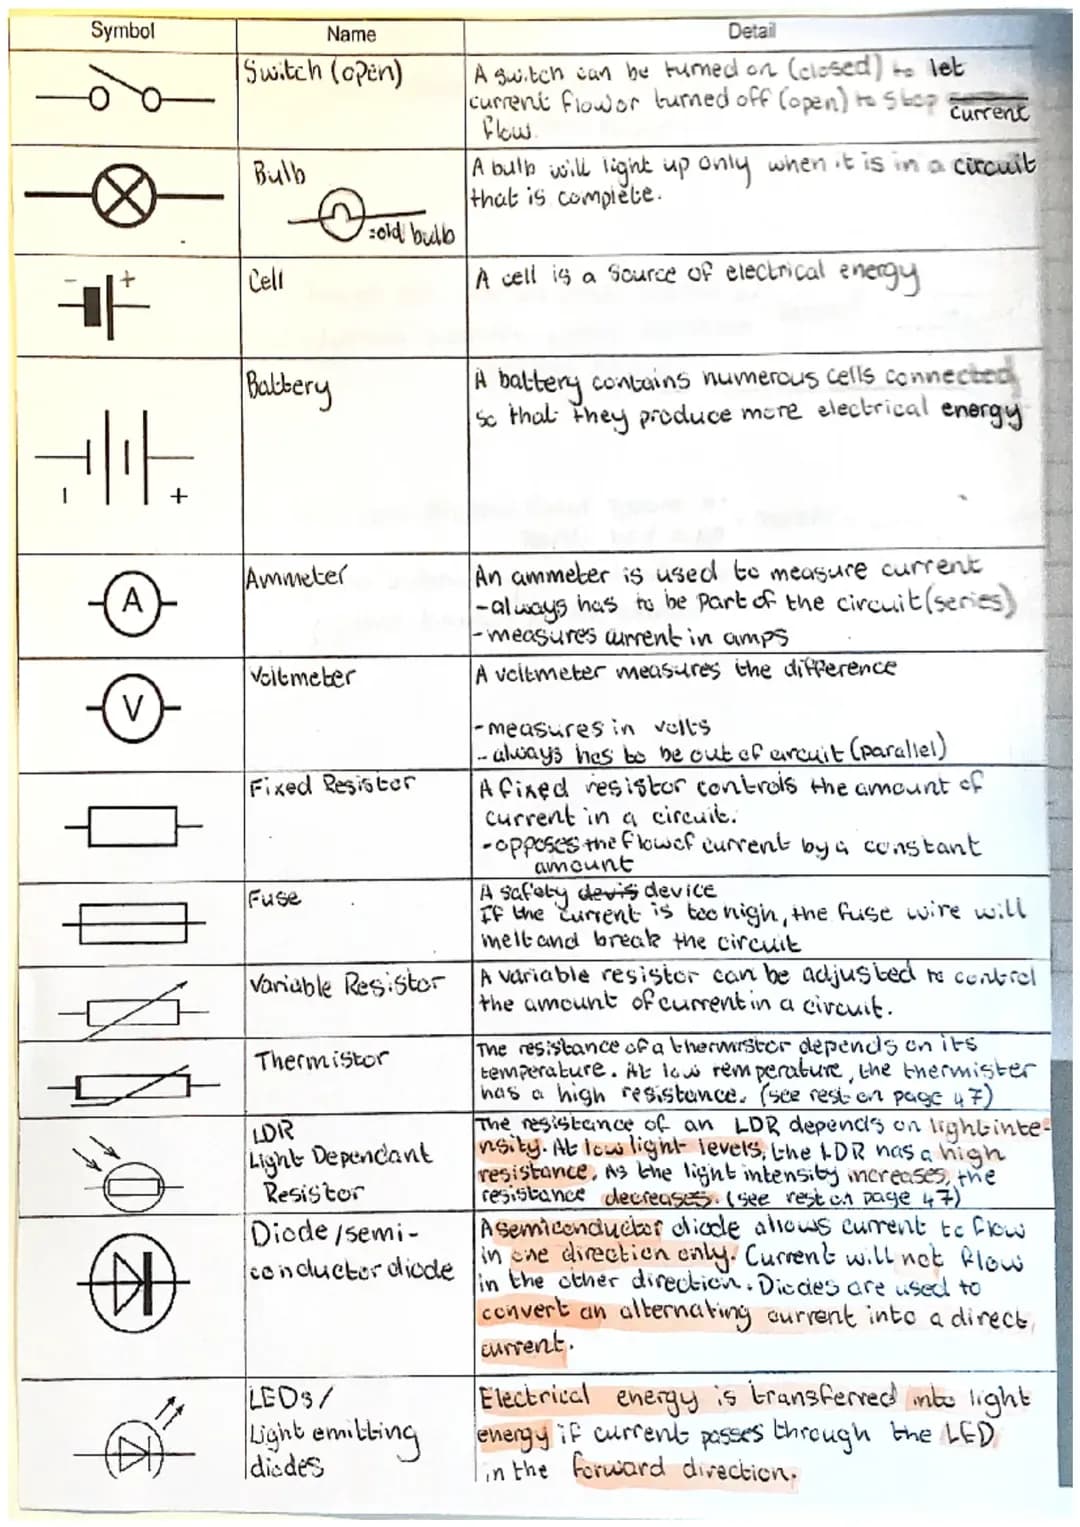 Symbol Name Detail
Switch (open)
A switch can be turned on (closed) to let
current flow or turned off (open) to stop
current
flow.
Bulb
=old bulb
A bulb will light up only when it is in a circuit
that is complete.
- +
Cell
A cell is a source of electrical energy
- +
Battery
A battery contains numerous cells connected
so that they produce more electrical energy
A
Ammeter
An ammeter is used to measure current
-always has to be part of the circuit (series)
-measures current in amps
V
Voltmeter
A voltmeter measures the difference
-measures in volts
-always has to be out of circuit (parallel)
Fixed Resistor
A fixed resistor controls the amount of
current in a circuit.
-opposes the flow of current by a constant
amount
Fuse
A safety devis device
If the current is too high, the fuse wire will
melt and break the circuit
Variable Resistor
A variable resistor can be adjusted to control
the amount of current in a circuit.
Thermistor
The resistance of a thermistor depends on its
temperature. At low temperature, the thermister
has a high resistance. (see rest on page 47)
LDR
Light Dependant
Resistor
The resistance of an LDR depends on light inte-
nsity. At low light levels, the LDR has a high
resistance. As the light intensity increases, the
resistance decreases. (see rest on page 47)
Diode/semi-
conductor diode
A semiconductor diode allows current to flow
in one direction only. Current will not flow
in the other direction. Diodes are used to
convert an alternating current into a direct
current.
LEDs/
Light emitting
diodes
Electrical energy is transferred into light
energy if current passes through the LED
in the forward direction.